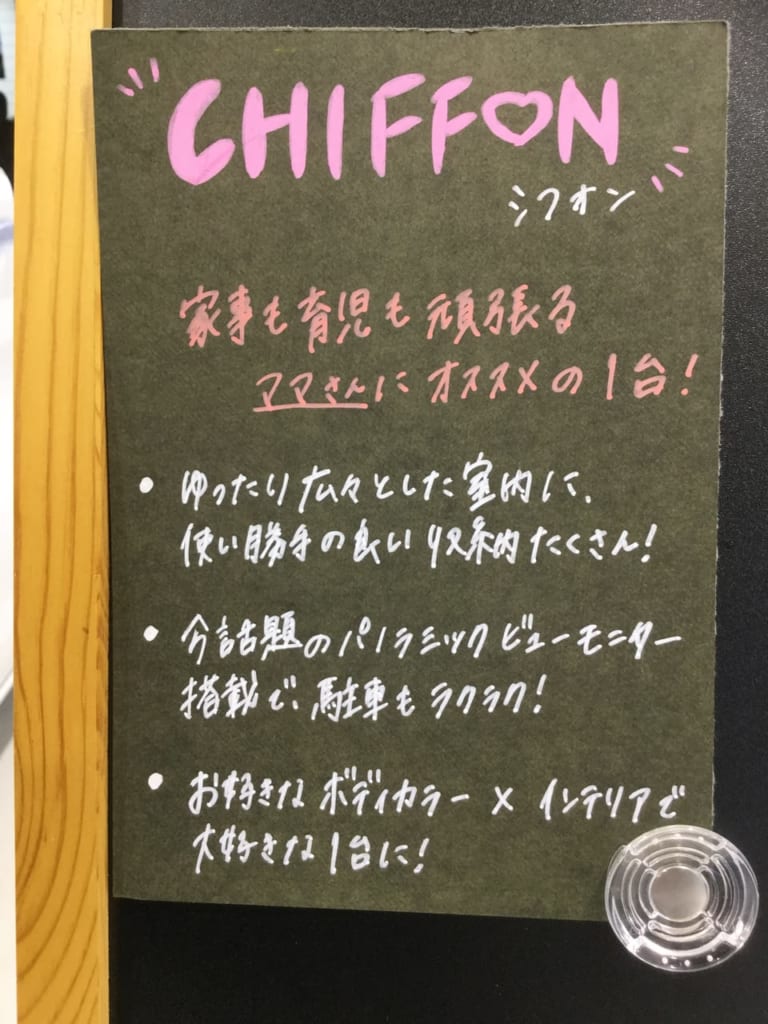 CHIFFON
シフォン
家事も育児も頑張る
ママさんにオススメの1台!
• ゆったり広々とした室内に、
使い勝手の良い収納たくさん!
• 今話題のパノラミックビューモニター
搭載で、駐車もラクラク!
• お好きなボディカラー×インテリアで
大好きな1台に!